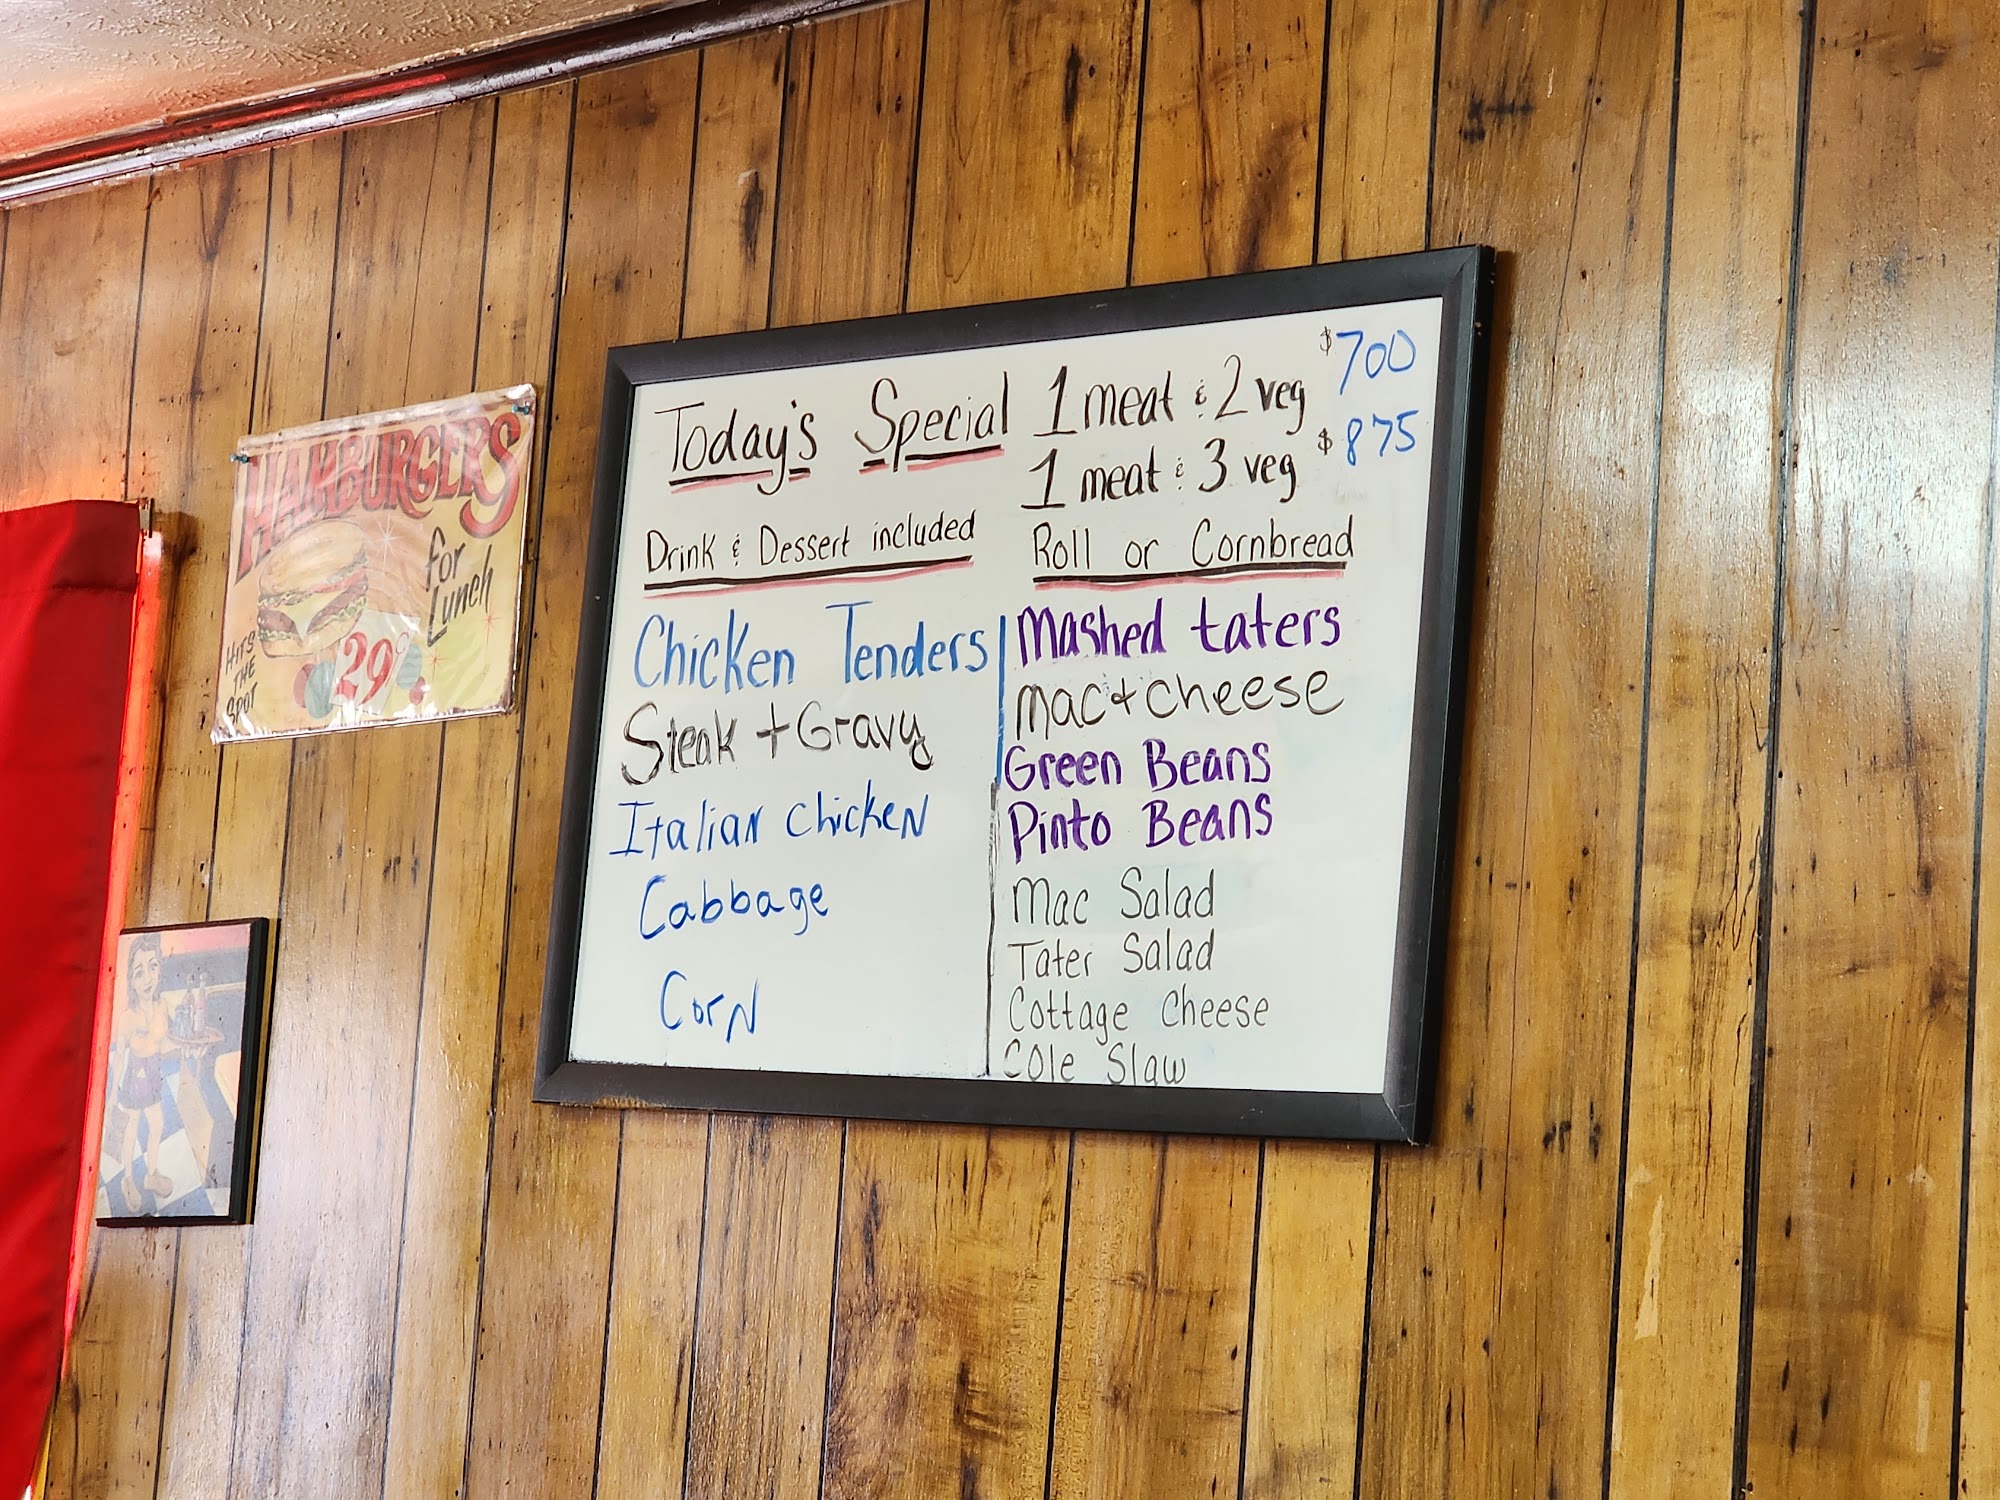 HAMBURGERS
for
Lunch
HITS
THE
SPOT
29¢
Today's Special 1 meat & 2 veg $700
1 meat & 3 veg $875
Drink & Dessert included
Roll or Cornbread
Chicken Tenders
Steak + Gravy
Italian Chicken
Cabbage
Corn
Mashed taters
Mac + cheese
Green Beans
Pinto Beans
Mac Salad
Tater Salad
Cottage Cheese
Cole Slaw